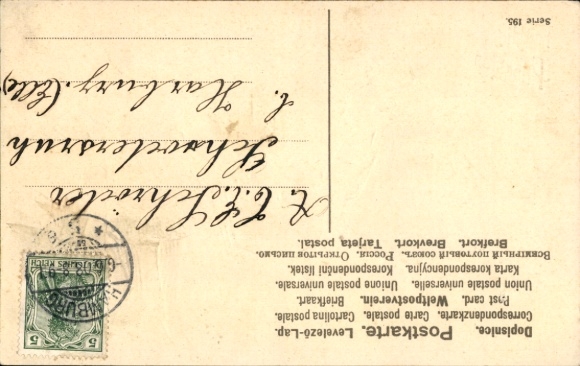 Dopisnice. Postkarte. Levelező-Lap.
Correspondenzkarte. Carte postale. Cartolina postale.
Post card. Weltpostverein. Briefkaart.
Union postale universelle. Unione postale universale.
Karta korespondencyjna. Korespondenční lístek.
Всемірный почтовый союзъ. Россія. Открытое письмо.
Brefkort. Brevkort. Tarjeta postal.
Schröder
Schrödersruh
b. Harburg. (Elbe)
Serie 195.
HAMBURG
DEUTSCHES REICH
5
5